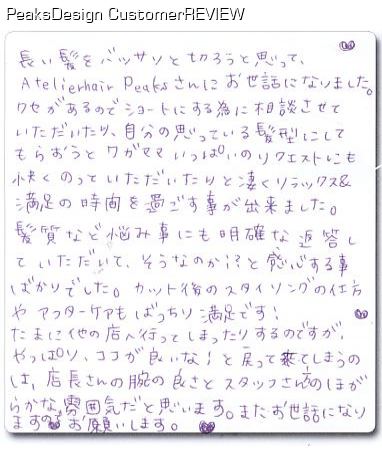 PeaksDesign CustomerREVIEW
長い髪をバッサリと切ろうと思って、
Atelierhair Peaksさんにお世話になりました。
クセがあるのでショートにする為に相談させて
いただいたり、自分の思っている髪型にして
もらおうとワガママいっぱいのリクエストにも
快くのっていただいたりと凄くリラックス&
満足の時間を過ごす事が出来ました。
髪質など悩み事にも明確な返答し
ていただいて、そうなのか!?と感心する事
ばかりでした。カット後のスタイリングの仕方
やアフターケアもばっちり満足です!
たまに他の店へ行ってしまったりするのですが、
やっぱり、ココが良いな!と戻って来てしまうの
は、店長さんの腕の良さとスタッフさん方のほが
らかな雰囲気だと思います。またお世話になり
ますのでお願いします。